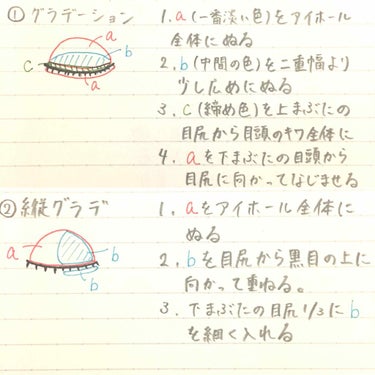 ① グラデーション
a
b
c
a
1. a(一番淡い色)をアイホール
全体にぬる
2. b(中間の色)を二重幅より
少し広めにぬる
3. c(締め色)を上まぶたの
目尻から目頭のキワ全体に
4. aを下まぶたの目頭から
目尻に向かってなじませる
② 縦グラデ
a
b
b
1. aをアイホール全体に
ぬる
2. bを目尻から黒目の上に
向かって重ねる。
3. 下まぶたの目尻1/3にb
を細く入れる